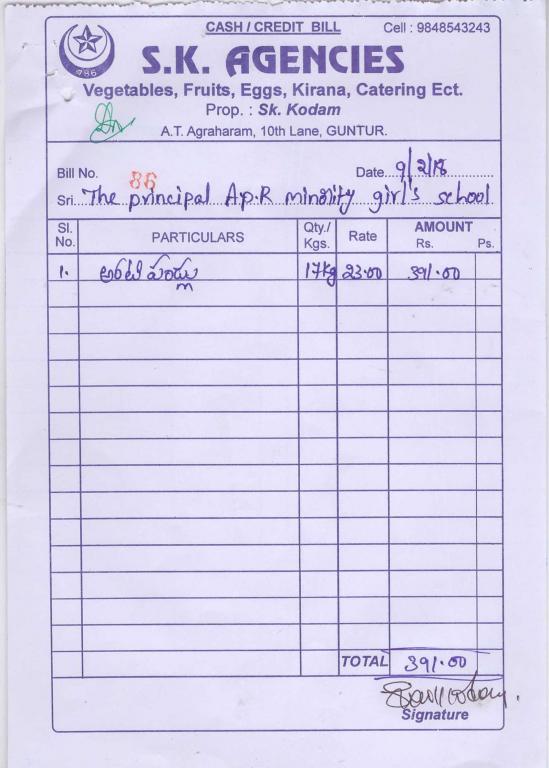 CASH / CREDIT BILL Cell : 9848543243
786
S.K. AGENCIES
Vegetables, Fruits, Eggs, Kirana, Catering Ect.
Prop. : Sk. Kodam
A.T. Agraharam, 10th Lane, GUNTUR.
Bill No. 86 Date 9/2/18
Sri. The principal A.P.R minority girl's school
Sl. No. PARTICULARS Qty./ Kgs. Rate AMOUNT Rs. Ps.
1. అరటి పండ్లు 17kg 23.00 391.00
TOTAL 391.00
Signature